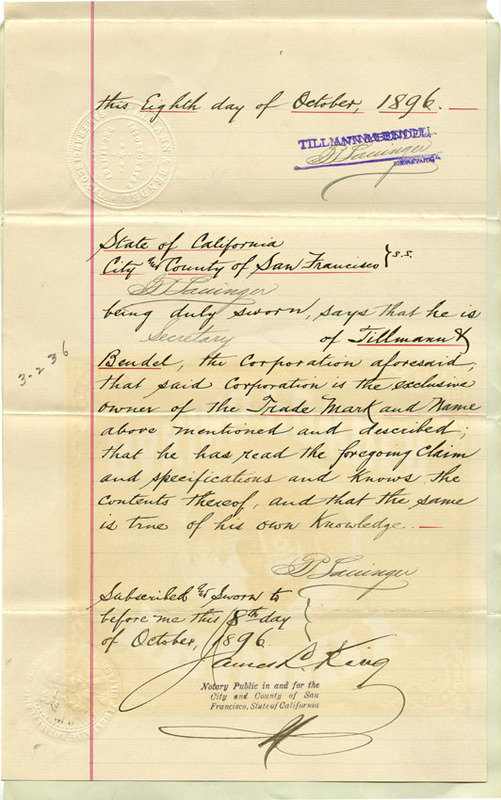 this Eighth day of October, 1896.
TILLMANN & BENDEL.
State of California
City & County of San Francisco } s.s.
being duly sworn, says that he is
Secretary of Tillmann &
Bendel, the Corporation aforesaid,
that said Corporation is the exclusive
owner of the Trade Mark and Name
above mentioned and described;
that he has read the foregoing Claim
and specifications and knows the
contents thereof, and that the same
is true of his own Knowledge.
3-236
Subscribed & Sworn to
before me this 8th day
of October, 1896
James L. King
Notary Public in and for the
City and County of San
Francisco, State of California